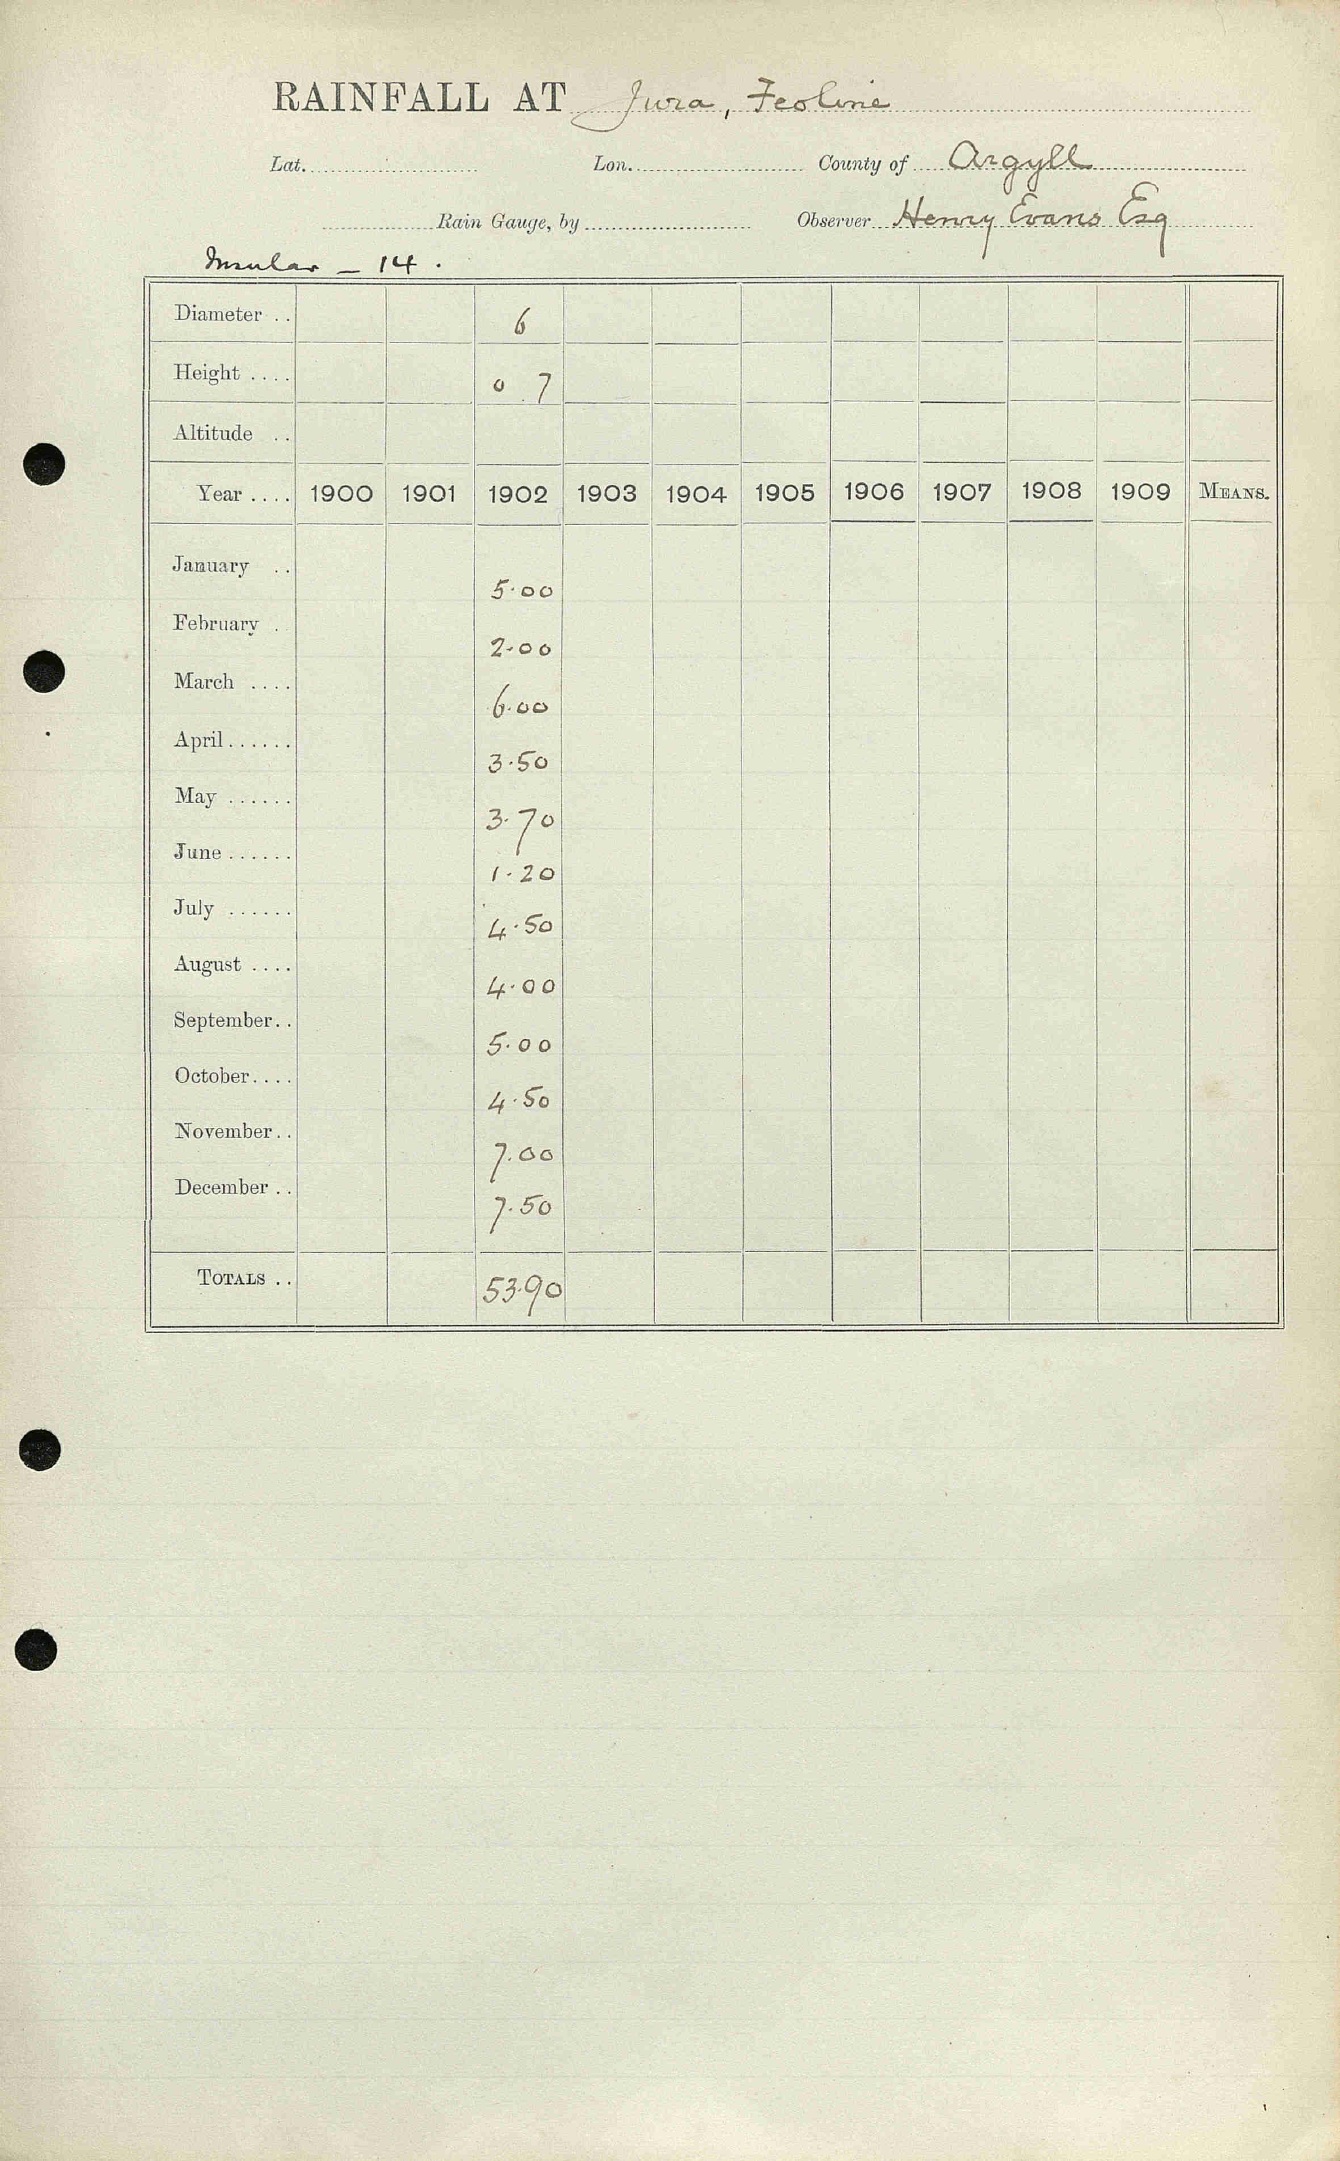 RAINFALL AT Jura, Feoline
Lat. Lon. County of Argyll
Rain Gauge, by Observer Henry Evans Esq
Insular — 14.
Diameter .. 6
Height .... 0 7
Altitude ..
Year .... 1900 1901 1902 1903 1904 1905 1906 1907 1908 1909 MEANS.
January .. 5.00
February . 2.00
March .... 6.00
April...... 3.50
May ...... 3.70
June ...... 1.20
July ...... 4.50
August .... 4.00
September.. 5.00
October.... 4.50
November.. 7.00
December .. 7.50
TOTALS .. 53.90